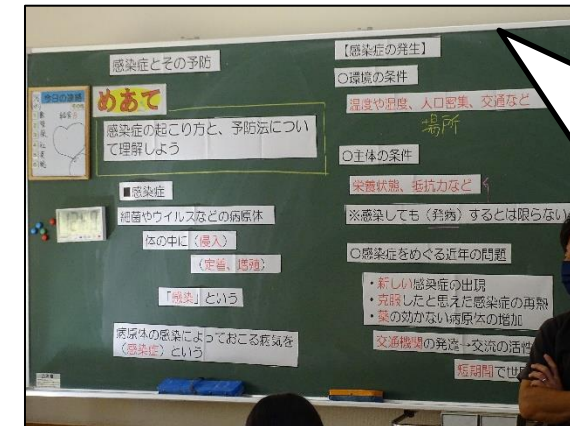 感染症とその予防
今日の連絡
めあて
感染症の起こり方と、予防法につい
て理解しよう
■感染症
細菌やウイルスなどの病原体
体の中に（侵入）
（定着、増殖）
「感染」という
病原体の感染によっておこる病気を
（感染症）という
【感染症の発生】
○環境の条件
温度や湿度、人口密集、交通など
場所
○主体の条件
栄養状態、抵抗力など
※感染しても（発病）するとは限らない
○感染症をめぐる近年の問題
・新しい感染症の出現
・克服したと思えた感染症の再熱
・薬の効かない病原体の増加
交通機関の発達→交流の活性
短期間で世